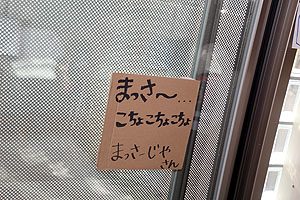 まっさ〜…
こちょこちょこちょ
まっさーじや
さん